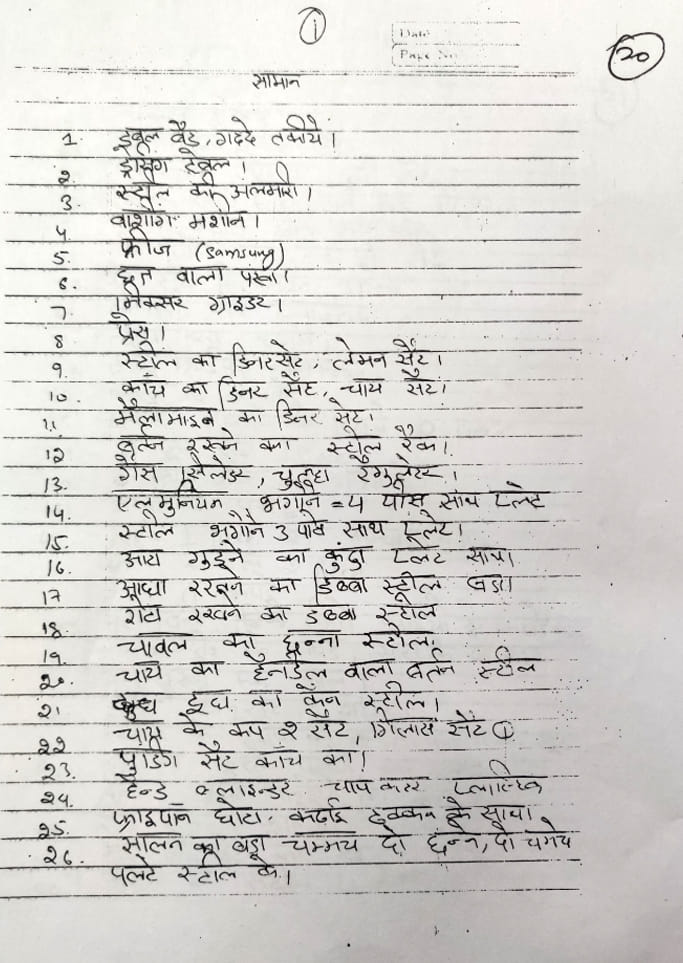 1
20
Date
Page No.
सामान
1. डबल बैड, गददे तकीये।
2. ड्रेसिंग टेबल।
3. स्टील की अलमारी।
4. वाशींग मशीन।
5. फ्रीज (Samsung)
6. छत वाला पंखा।
7. मिक्सर ग्राइंडर।
8 प्रेस।
9. स्टील का डिनर सेट, लेमन सैट।
10. कांच का डिनर सैट, चाय सेट।
11. मैलामाइन का डिनर सेट।
12 बर्तन रखने का स्टील रैक।
13. गैस सिलेंडर, चुल्हा रेगुलेटर।
14. एलमुनियम भगौने = 4 पीस साथ प्लेट
15. स्टील भगौने 3 पीस साथ प्लेट।
16. आटा गुड़ने का कुंडा प्लेट साथ।
17 आधा रखने का डिब्बा स्टील बडा।
18. रोटी रखने का डब्बा स्टील
19. चावल का छन्ना स्टील।
20. चाय का हैनडेल वाला बर्तन स्टील
21 दूध का कैन स्टील।
22 चाय के कप 2 सैट, गिलास सैट 1
23. पुडिंग सैट कांच का।
24. हैन्ड ब्लाइन्डर चाप कटर प्लास्टिक
25. फ्राइपान छोटा, कढाई ढक्कन के साथ।
26. सालन का बडा चम्मच दो छन्ने, दो चमचे
पलटे स्टील के।